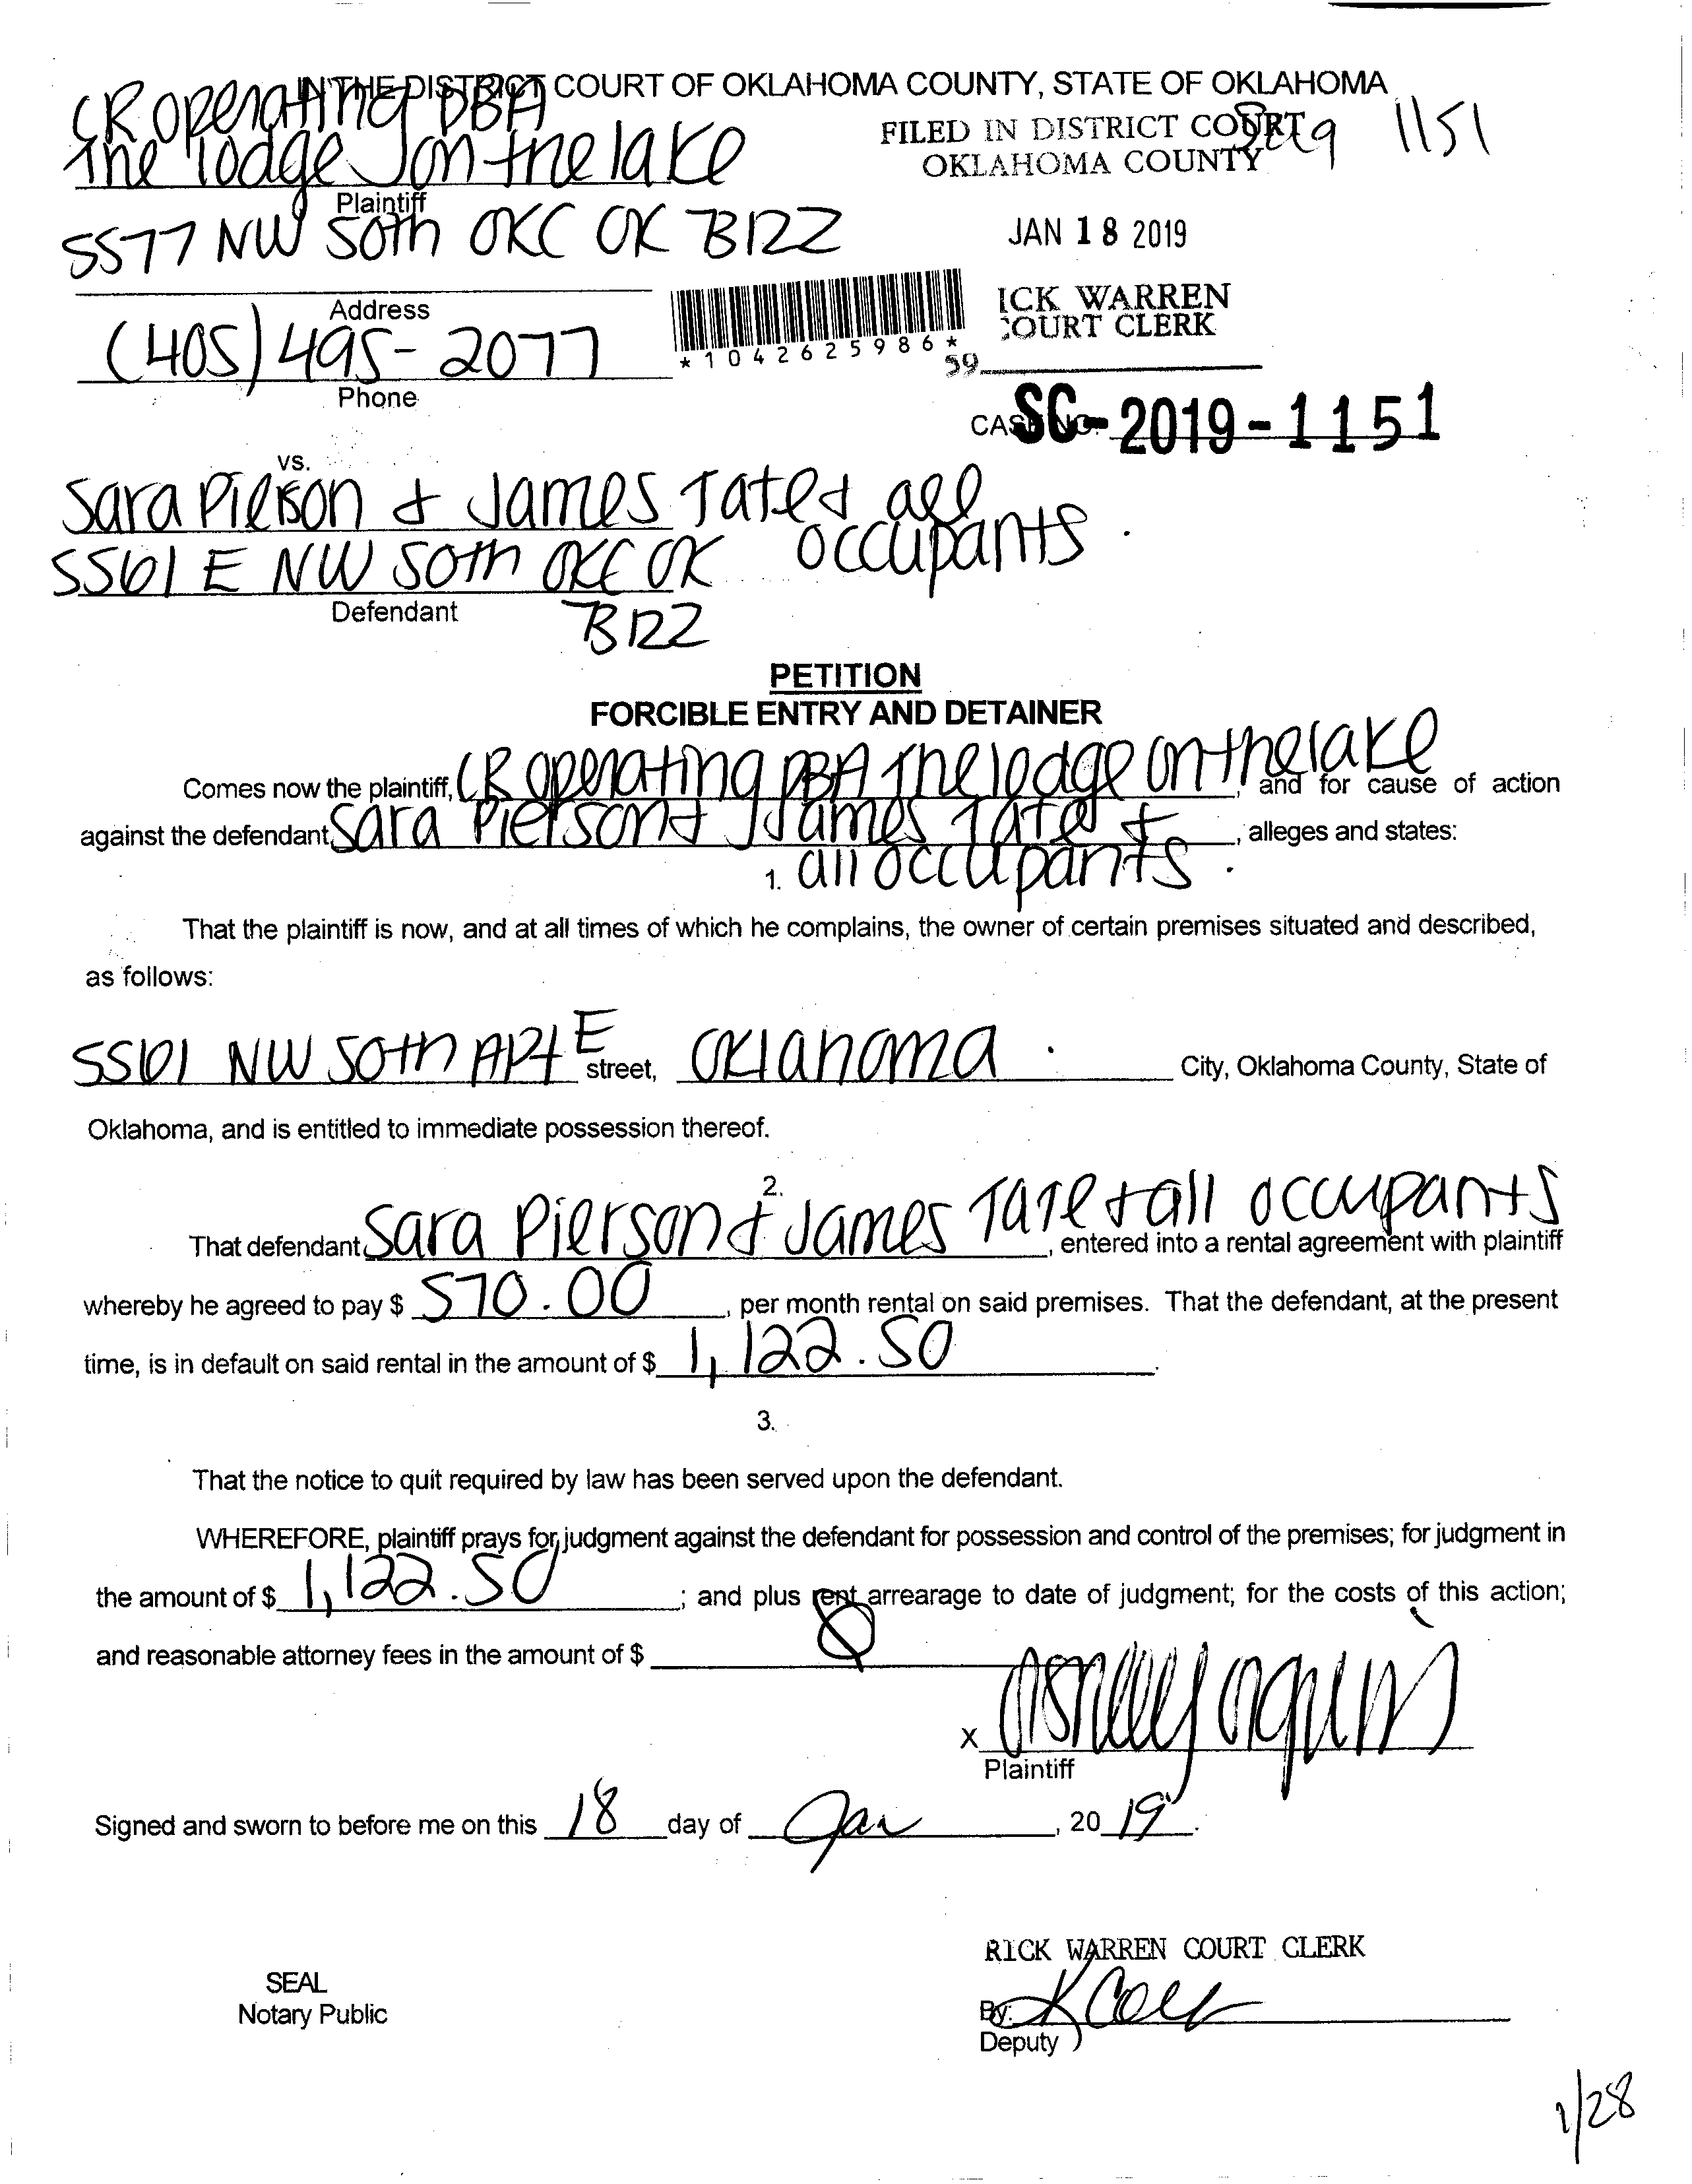 IN THE DISTRICT COURT OF OKLAHOMA COUNTY, STATE OF OKLAHOMA
CR operating DBA
The lodge on the lake
Plaintiff
FILED IN DISTRICT COURT
OKLAHOMA COUNTY
1151
5577 NW 50th OKC OK 73122
Address
JAN 18 2019
(405) 495-2077
Phone
*1042625986*
ICK WARREN
COURT CLERK
59
CASE NO. SC-2019-1151
vs.
Sara Pierson & James Tate & all
occupants.
5561 E NW 50th OKC OK
73122
Defendant
PETITION
FORCIBLE ENTRY AND DETAINER
Comes now the plaintiff, CR operating DBA The lodge on the lake, and for cause of action
against the defendant, Sara Pierson & James Tate & , alleges and states:
all occupants.
1.
That the plaintiff is now, and at all times of which he complains, the owner of certain premises situated and described,
as follows:
5561 NW 50th APT E street, Oklahoma. City, Oklahoma County, State of
Oklahoma, and is entitled to immediate possession thereof.
2.
That defendant, Sara Pierson & James Tate & all occupants, entered into a rental agreement with plaintiff
whereby he agreed to pay $ 570.00, per month rental on said premises. That the defendant, at the present
time, is in default on said rental in the amount of $ 1,122.50.
3.
That the notice to quit required by law has been served upon the defendant.
WHEREFORE, plaintiff prays for judgment against the defendant for possession and control of the premises; for judgment in
the amount of $ 1,122.50; and plus rent arrearage to date of judgment; for the costs of this action;
and reasonable attorney fees in the amount of $ 0
x
Plaintiff
Signed and sworn to before me on this 18 day of Jan, 2019.
SEAL
Notary Public
RICK WARREN COURT CLERK
By:
Deputy
1/28